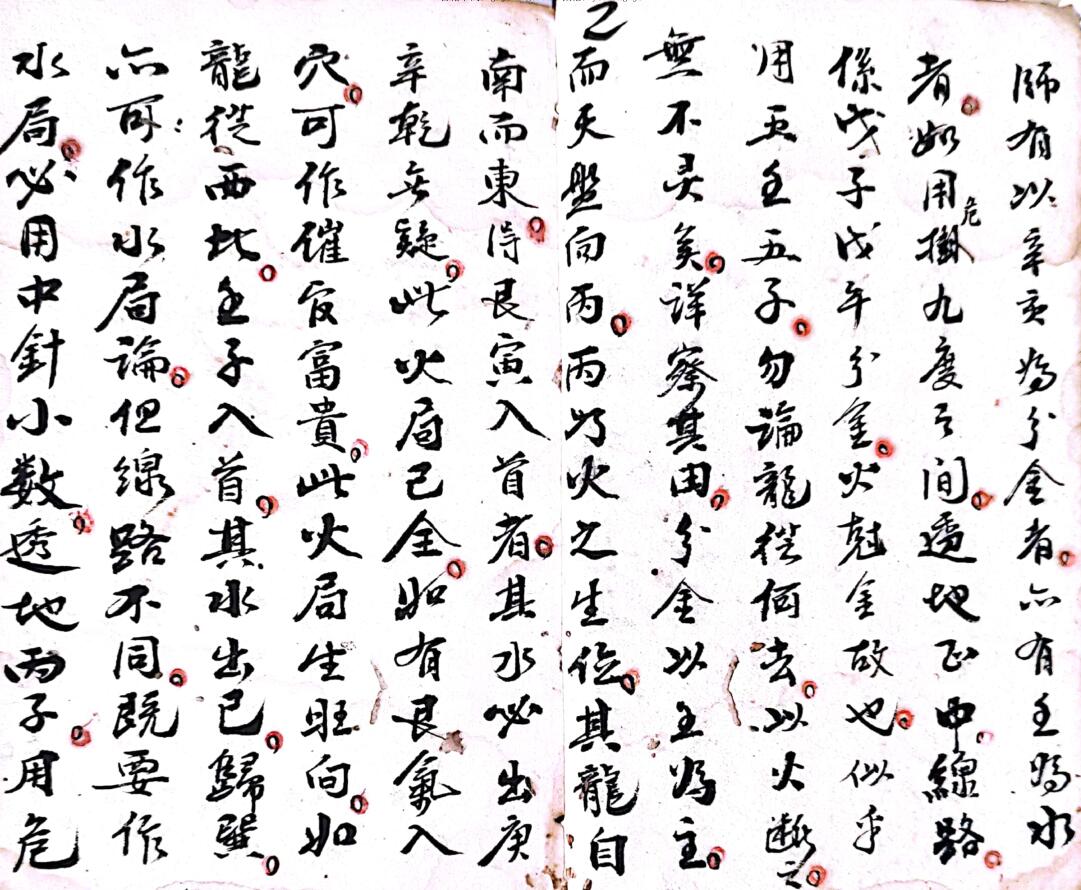 師有以辛亥為分金者亦有壬為水
者如用危掛九度之間透地正中線路
係戊子戊午分金火尅金故也似乎
用丑壬五子勿論龍從何去以火斷之
無不灵矣詳察其由分金以主為主
而天盤向丙丙乃火之生位其龍自
南而東得艮寅入首者其水必出庚
辛乾无疑此火局已全如有艮氣入
穴可作催官富貴此火局生旺向如
龍從西北壬子入首其水出巳歸巽
亦可作水局論但線路不同既要作
水局必用中針小数透地丙子用危